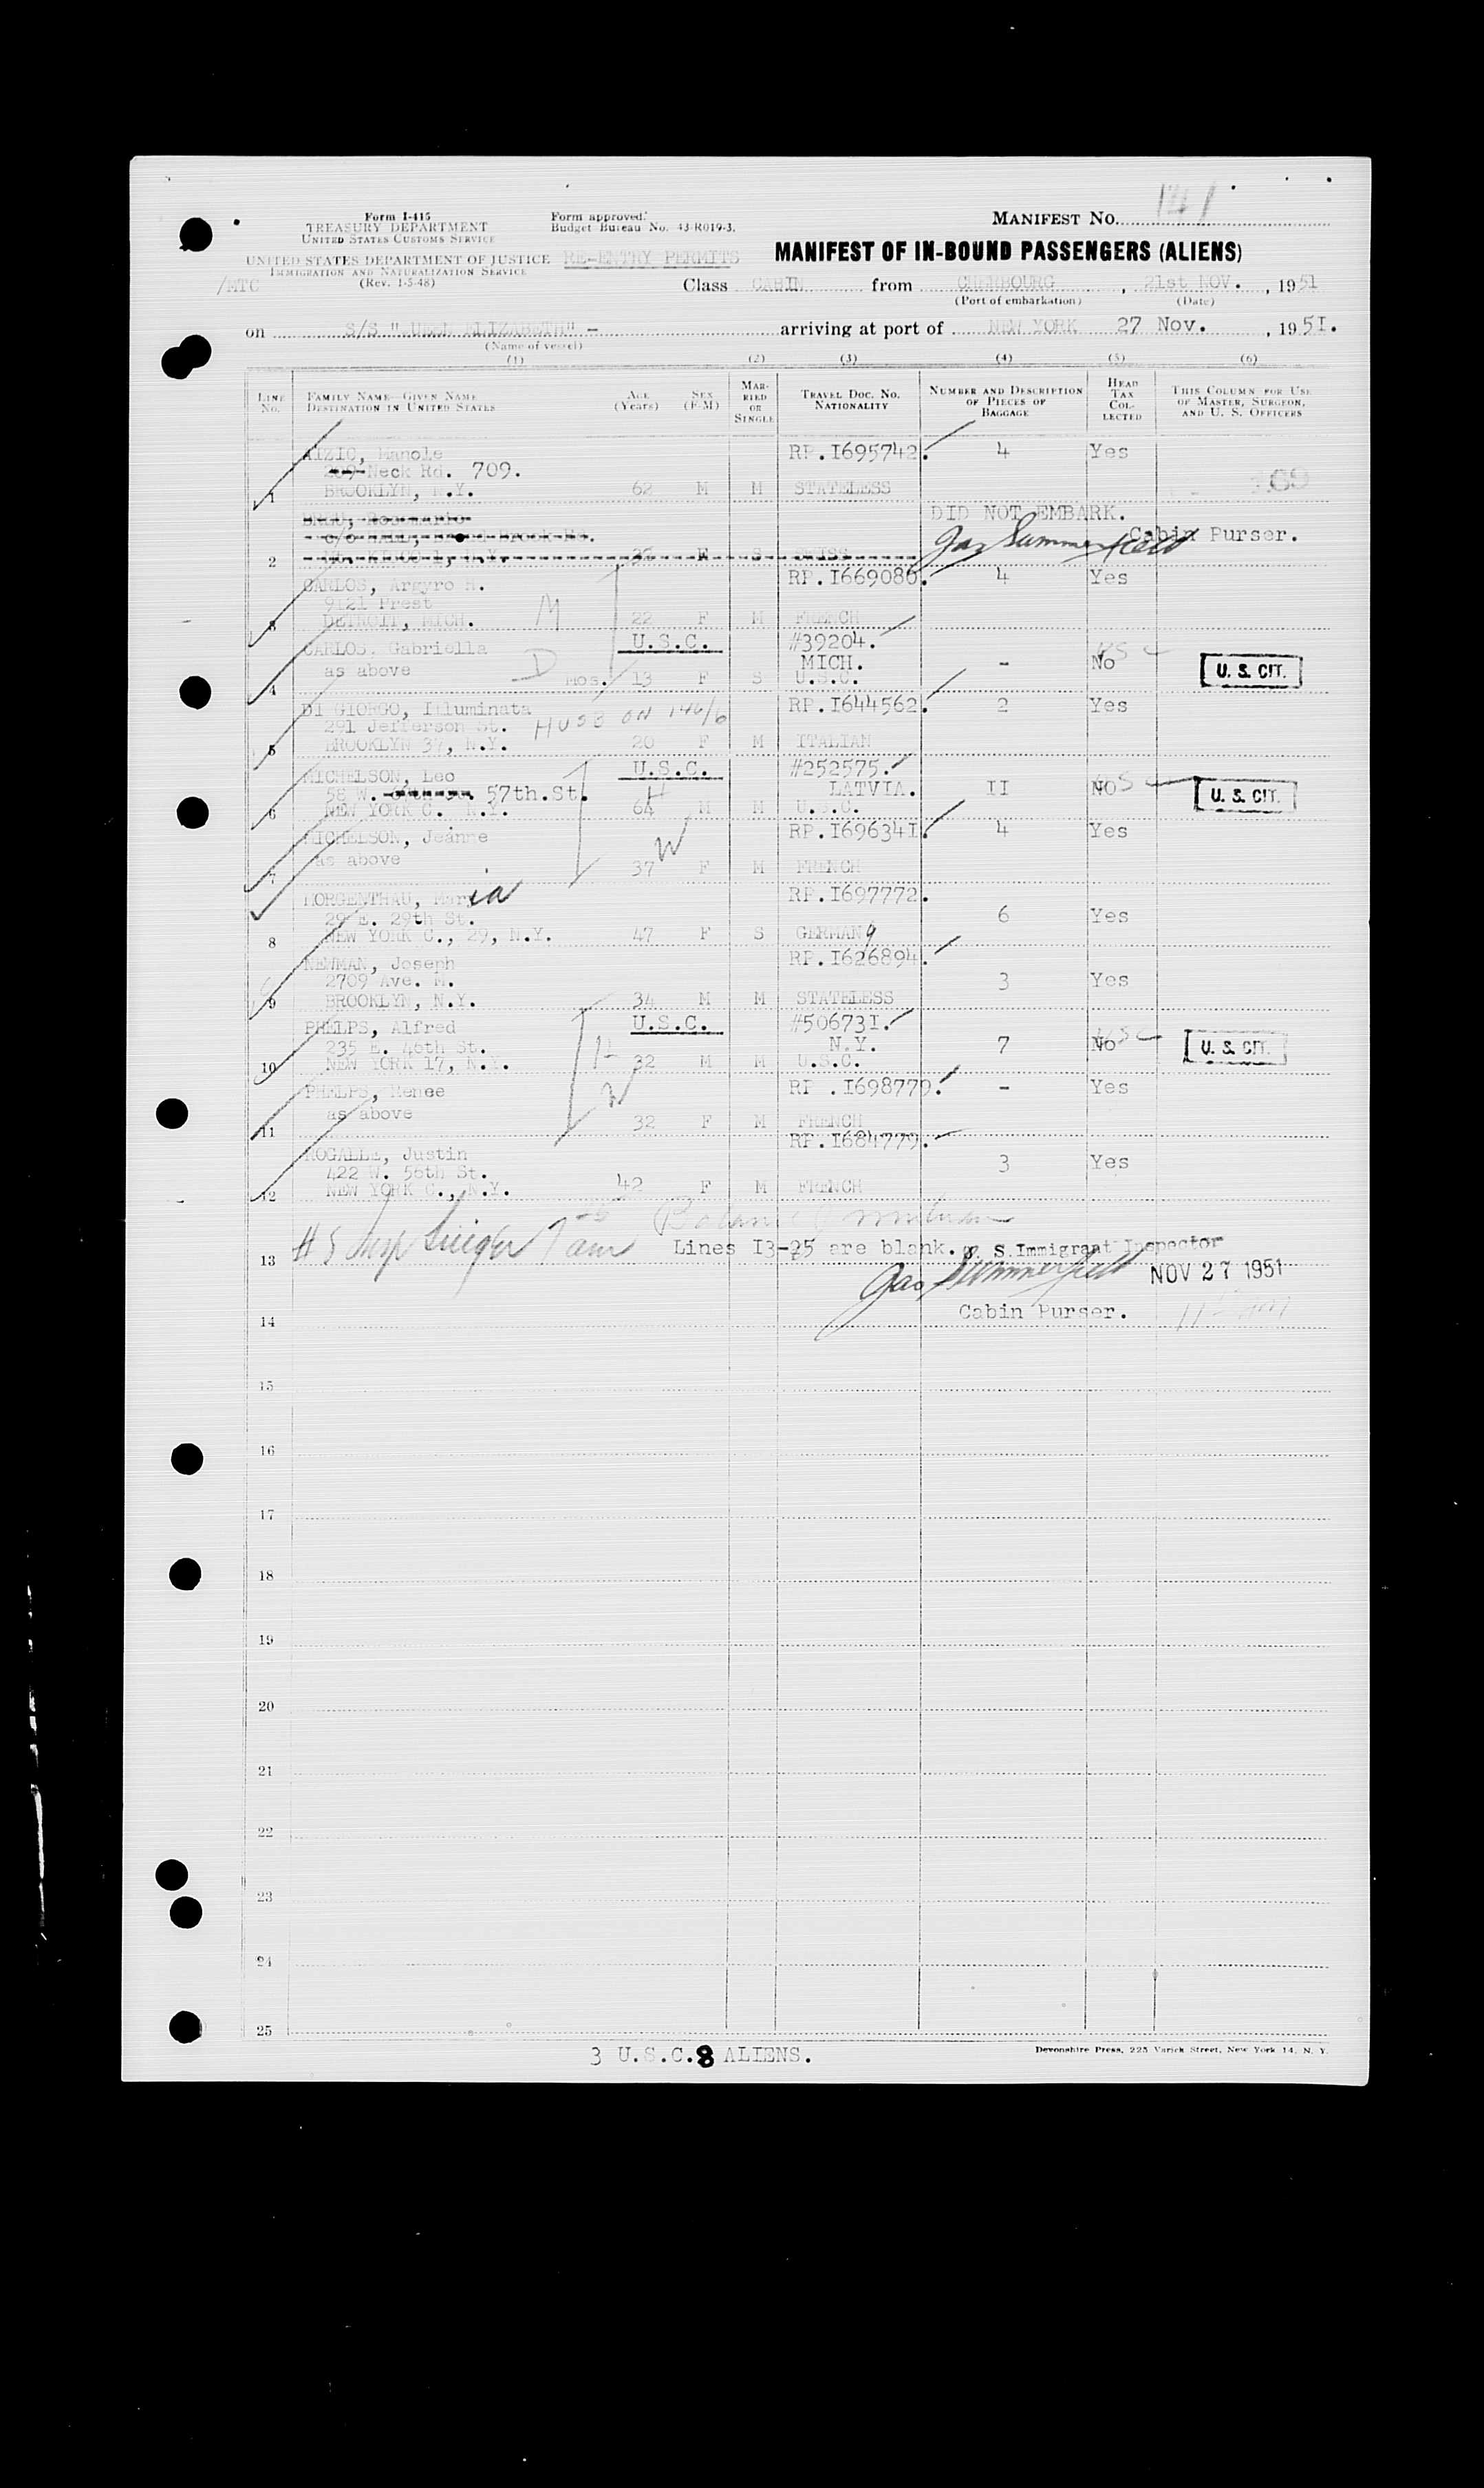 Form I-415
TREASURY DEPARTMENT
UNITED STATES CUSTOMS SERVICE
UNITED STATES DEPARTMENT OF JUSTICE
IMMIGRATION AND NATURALIZATION SERVICE
(Rev. 1-5-48)
/MTC
Form approved.
Budget Bureau No. 43-R019-3.
RE-ENTRY PERMITS
MANIFEST NO. 141
MANIFEST OF IN-BOUND PASSENGERS (ALIENS)
Class CABIN from CHERBOURG, 21st NOV., 1951
(Port of embarkation) (Date)
on S/S "QUEEN ELIZABETH" - arriving at port of NEW YORK 27 Nov., 1951.
(Name of vessel)
(1) (2) (3) (4) (5) (6)
LINE No. FAMILY NAME—GIVEN NAME DESTINATION IN UNITED STATES AGE (Years) SEX (F-M) MARRIED OR SINGLE TRAVEL DOC. NO. NATIONALITY NUMBER AND DESCRIPTION OF PIECES OF BAGGAGE HEAD TAX COLLECTED THIS COLUMN FOR USE OF MASTER, SURGEON, AND U. S. OFFICERS
AIZIC, Manole RP.I695742. 4 Yes
Neck Rd. 709.
1 BROOKLYN, N.Y. 62 M M STATELESS
DID NOT EMBARK.
Jas Summerfield Cabin Purser.
2 Mt. KISCO 1, N.Y. F S SWISS
CARLOS, Argyro H. RP.I669080. 4 Yes
9121 Prest M
3 DETROIT, MICH. 22 F M FRENCH
CARLOS, Gabriella U.S.C. #39204.
as above D MICH. - No USC U. S. CIT.
4 Mos. 13 F S U.S.C.
DI GIORGO, Illuminata RP.I644562. 2 Yes
291 Jefferson St. HUSB ON 146/6
5 BROOKLYN 37, N.Y. 20 F M ITALIAN
MICHELSON, Leo U.S.C. #252575.
58 W. 57th.St. H LATVIA. II NO USC U. S. CIT.
6 NEW YORK C. N.Y. 64 M M U.S.C.
MICHELSON, Jeanne RP.I69634I. 4 Yes
as above W
7 37 F M FRENCH
MORGENTHAU, Maria RP.I697772.
29 E. 29th St. 6 Yes
8 NEW YORK C., 29, N.Y. 47 F S GERMANY
NEWMAN, Joseph RP.I626894.
2709 Ave. M. 3 Yes
9 BROOKLYN, N.Y. 34 M M STATELESS
PHELPS, Alfred U.S.C. #50673I.
235 E. 46th St. H N.Y. 7 No USC U. S. CIT.
10 NEW YORK 17, N.Y. 32 M M U.S.C.
PHELPS, Renee W RP.I698779. - Yes
as above
11 32 F M FRENCH
ROGALLE, Justin RP.I684779.
422 W. 56th St. 3 Yes
12 NEW YORK C., N.Y. 42 F M FRENCH
13 Lines I3-25 are blank. U. S. Immigrant Inspector
Jas Summerfield NOV 27 1951
14 Cabin Purser.
15
16
17
18
19
20
21
22
23
24
25
3 U.S.C. 8 ALIENS.
Devonshire Press, 225 Varick Street, New York 14, N. Y.